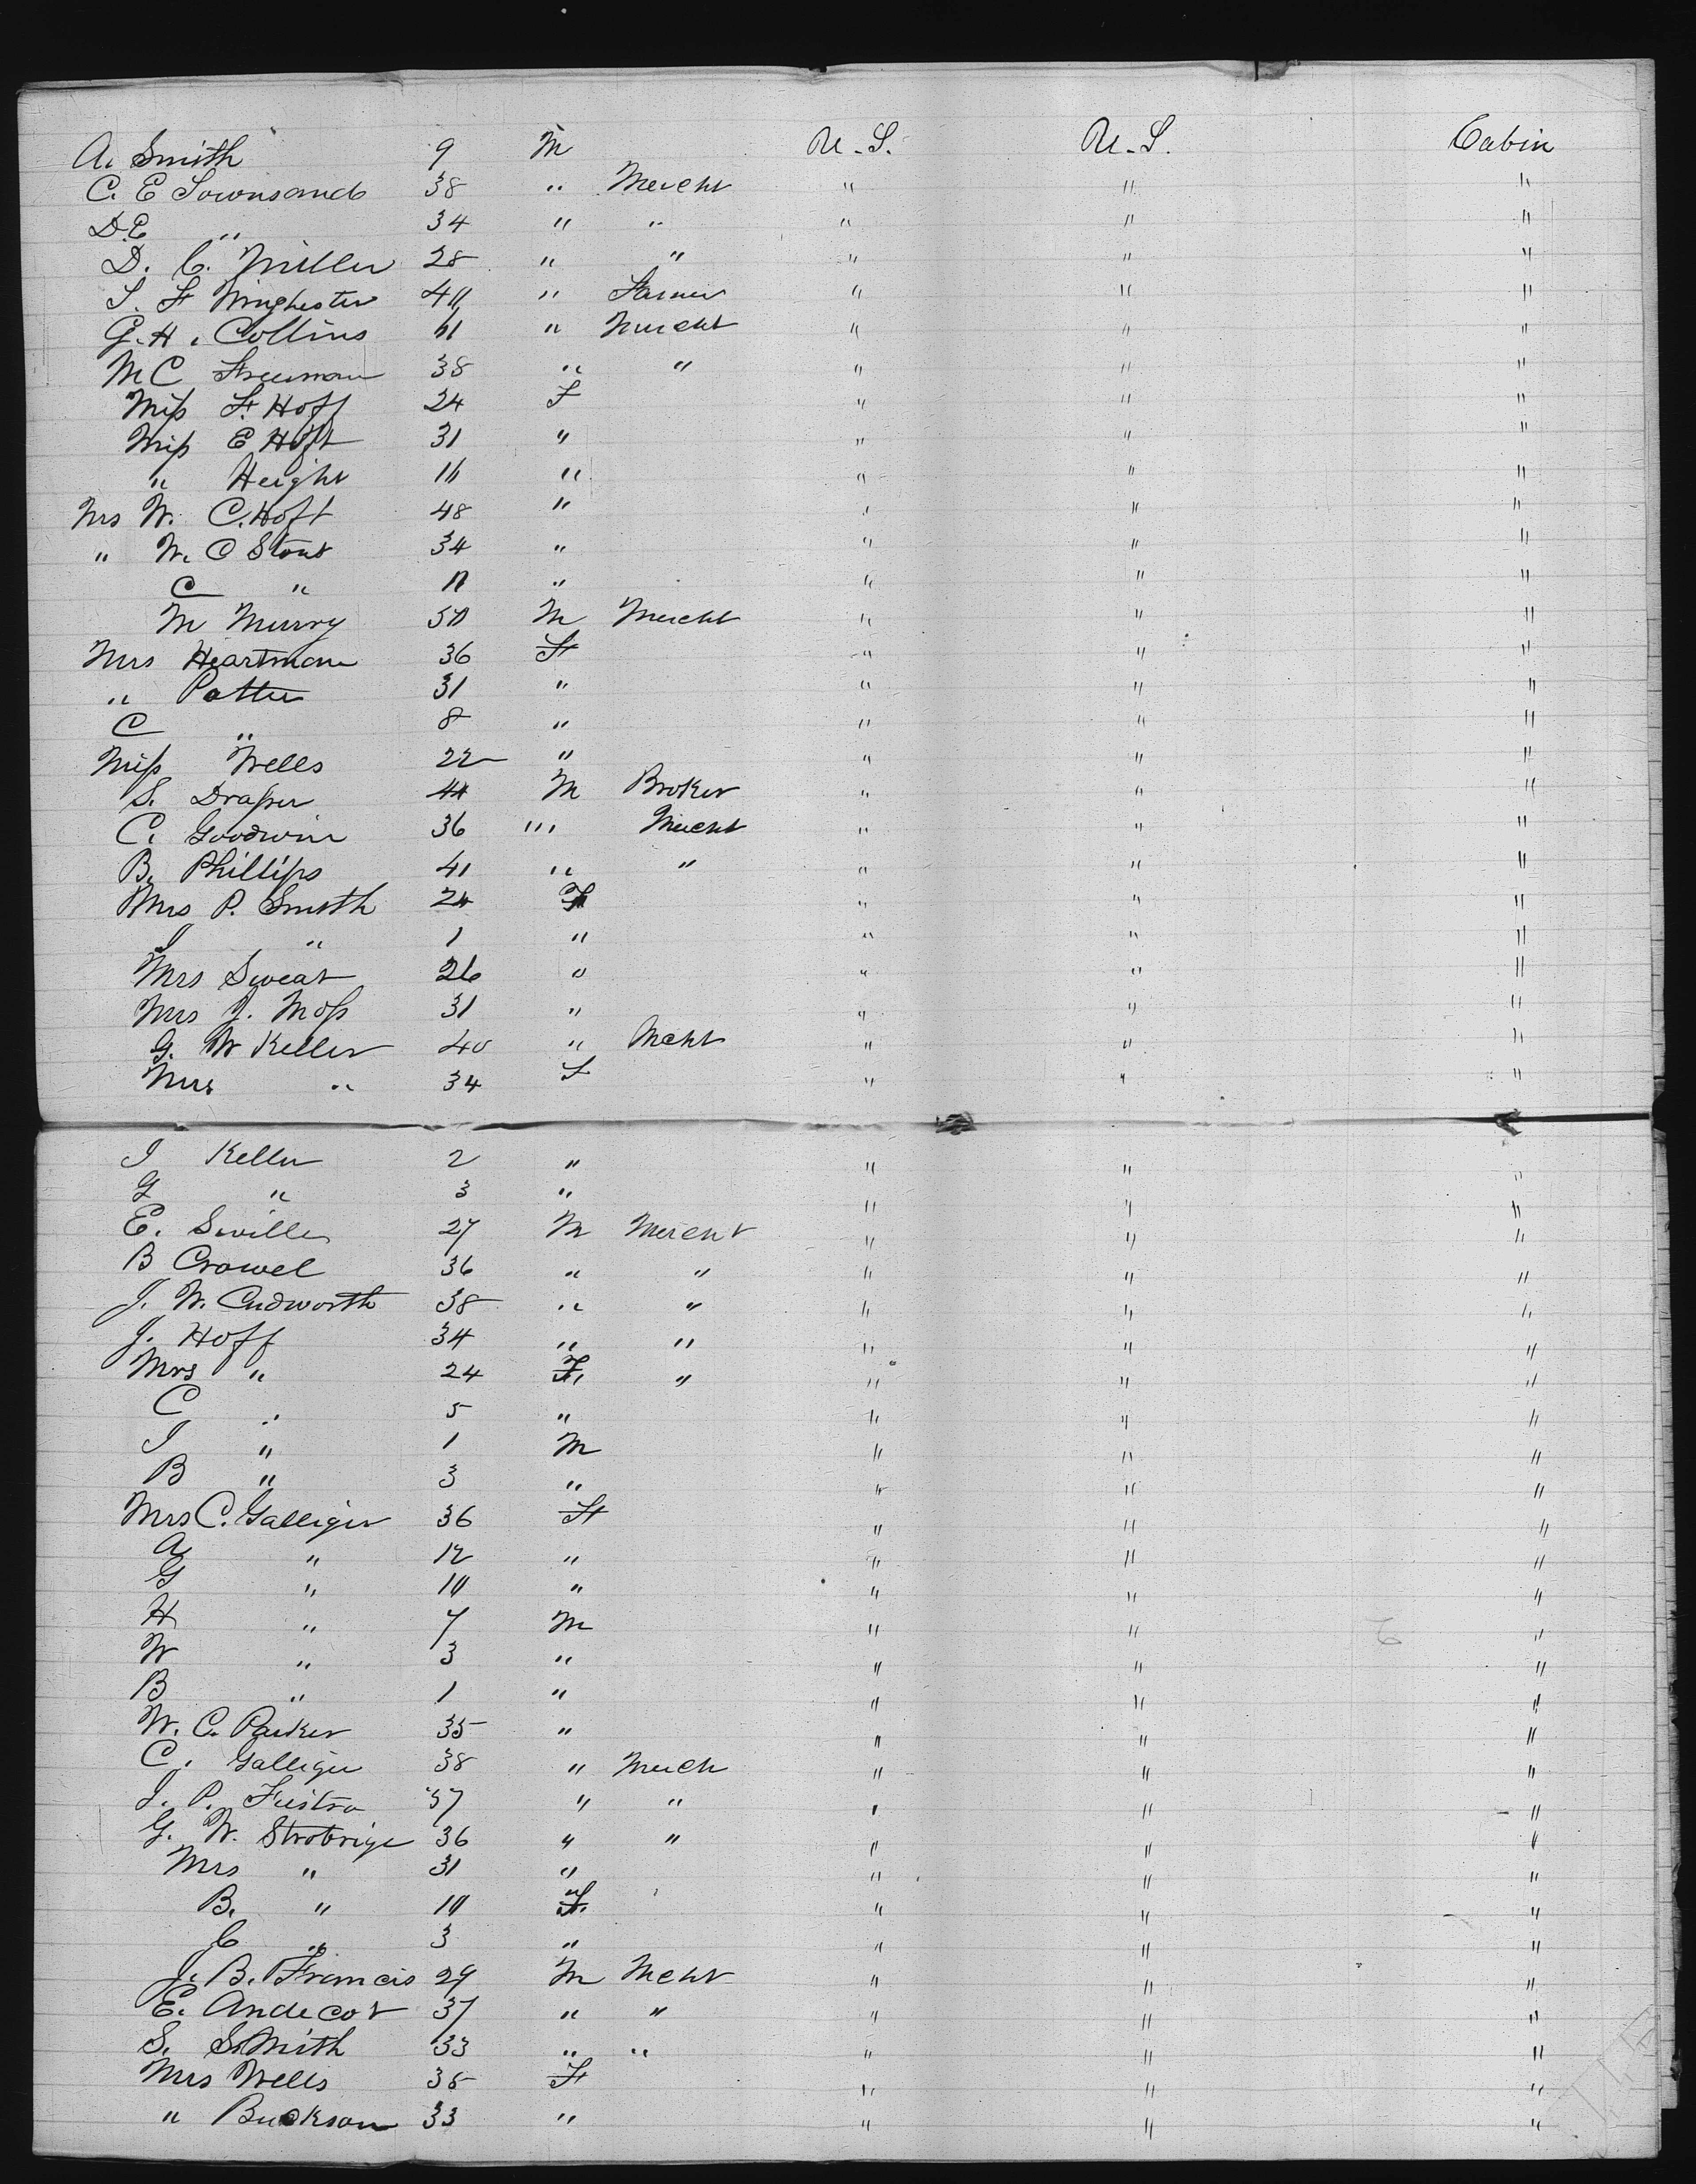 A. Smith 9 M U.S. U.S. Cabin
C. E Townsand 38 " Mercht " " "
D.E " 34 " " " " "
D. C. Miller 28 " " " " "
S. F Winghester 40 " Farmer " " "
G. H. Collins 41 " Mercht " " "
M C Freeman 38 " " " " "
Miss F. Hoff 24 F " " "
Miss E Hoft 31 " " " "
" Height 16 " " " "
Mrs W. C. Hoft 48 " " " "
" W. C Stout 34 " " " "
C " 11 " " " "
M Murry 50 M Mercht " " "
Mrs Heartman 36 F " " "
" Potter 31 " " " "
C " 8 " " " "
Miss Wells 22 " " " "
S. Draper 44 M Broker " " "
C. Goodwin 36 " Mercht " " "
B. Phillips 41 " " " " "
Mrs P. Smith 24 F " " "
J " 1 " " " "
Mrs Sweat 26 " " " "
Mrs J. Moss 31 " " " "
G. W Keller 40 " Mcht " " "
Mrs " 34 F " " "
I Keller 2 " " " "
G " 3 " " " "
E. Seville 27 M Mercht " " "
B Crowel 36 " " " " "
J. W. Cudworth 38 " " " " "
J. Hoff 34 " " " " "
Mrs " 24 F " " " "
C " 5 " " " "
I " 1 M " " "
B " 3 " " " "
Mrs C. Galligir 36 F " " "
A " 12 " " " "
G " 10 " " " "
H " 7 M " " "
W " 3 " " " "
B " 1 " " " "
W. C. Parker 35 " " " "
C. Galligir 38 " Merch " " "
J. P. Feistro 37 " " " " "
G. W. Strobrige 36 " " " " "
Mrs " 31 " " " "
B. " 10 F " " "
C " 3 " " " "
J. B. Francis 29 M Mcht " " "
E. Andecot 37 " " " " "
S. Smith 33 " " " " "
Mrs Wells 38 F " " "
" Buckson 33 " " " "